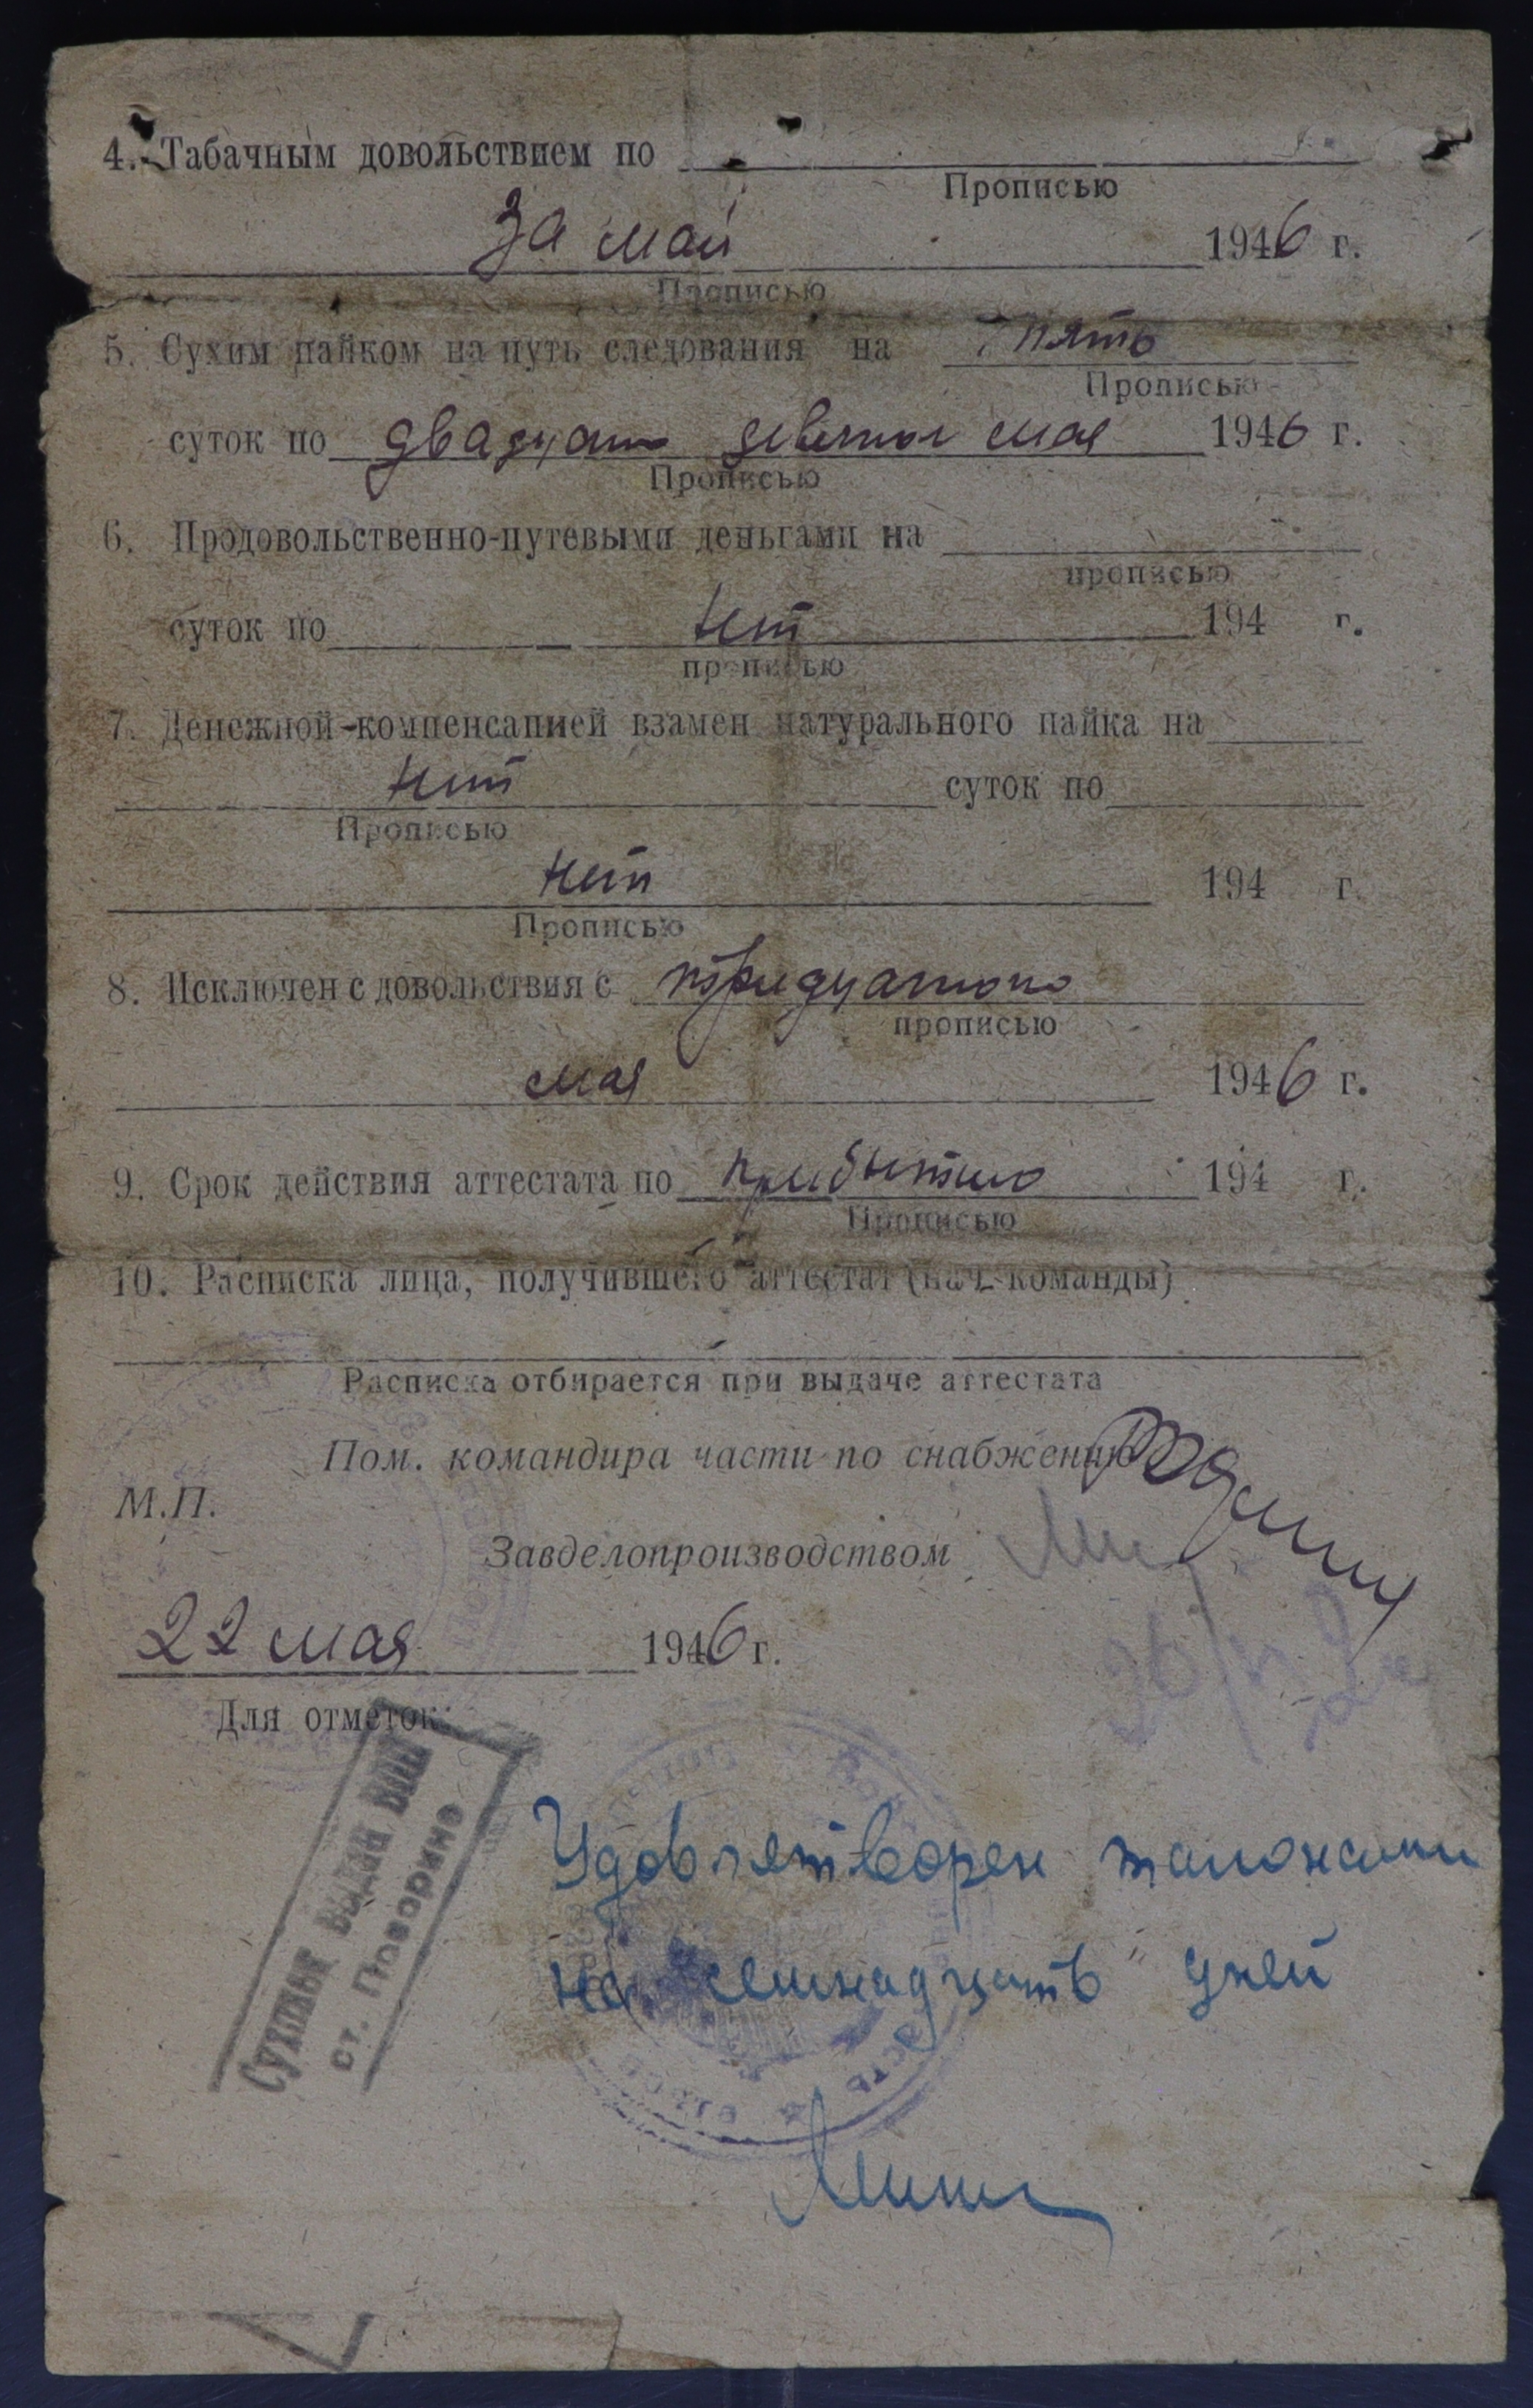 4. Табачным довольствием по
Прописью
За май 1946 г.
Прописью
5. Сухим пайком на путь следования на пять
Прописью
суток по двадцать девятое мая 1946 г.
Прописью
6. Продовольственно-путевыми деньгами на
прописью
суток по нет 194 г.
прописью
7. Денежной компенсацией взамен натурального пайка на
нет суток по
Прописью
нет 194 г.
Прописью
8. Исключен с довольствия с тридцатого
прописью
мая 1946 г.
9. Срок действия аттестата по прибытию 194 г.
Прописью
10. Расписка лица, получившего аттестат (нач. команды)
Расписка отбирается при выдаче аттестата
Пом. командира части по снабжению
М.П.
Завделопроизводством
22 мая 1946 г.
Для отметок
Сухпаек выдан
ст. Поворино
Удовлетворен талонами
на "семнадцать" дней